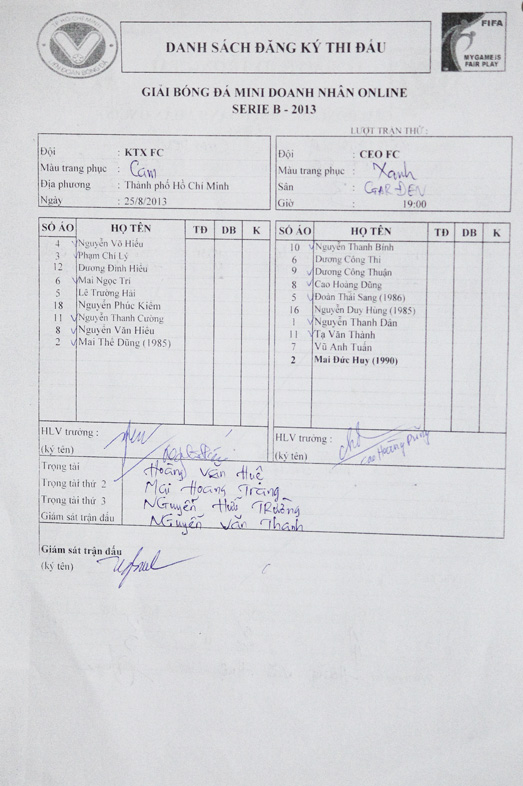 DANH SÁCH ĐĂNG KÝ THI ĐẤU
FIFA
MY GAME IS
FAIR PLAY
GIẢI BÓNG ĐÁ MINI DOANH NHÂN ONLINE
SERIE B - 2013
LƯỢT TRẬN THỨ :
Đội : KTX FC
Màu trang phục : Cam
Địa phương : Thành phố Hồ Chí Minh
Ngày : 25/8/2013
Đội : CEO FC
Màu trang phục : Xanh
Sân : GARDEN
Giờ : 19:00
SỐ ÁO HỌ TÊN TĐ DB K
4 Nguyễn Võ Hiếu
3 Phạm Chí Lý
12 Dương Đình Hiếu
6 Mai Ngọc Trí
5 Lê Trường Hải
18 Nguyễn Phúc Kiểm
11 Nguyễn Thanh Cường
8 Nguyễn Văn Hiếu
2 Mai Thế Dũng (1985)
SỐ ÁO HỌ TÊN TĐ DB K
10 Nguyễn Thanh Bình
6 Dương Công Thi
9 Dương Công Thuận
8 Cao Hoàng Dũng
5 Đoàn Thái Sang (1986)
16 Nguyễn Duy Hùng (1985)
1 Nguyễn Thanh Dân
11 Tạ Văn Thành
7 Vũ Anh Tuấn
2 Mai Đức Huy (1990)
HLV trưởng :
(ký tên)
HLV trưởng :
(ký tên) Cao Hoàng Dũng
Trọng tài Hoàng Văn Huệ
Trọng tài thứ 2 Mai Hoàng Trang
Trọng tài thứ 3 Nguyễn Hữu Trường
Giám sát trận đấu Nguyễn Văn Thanh
Giám sát trận đấu
(ký tên)